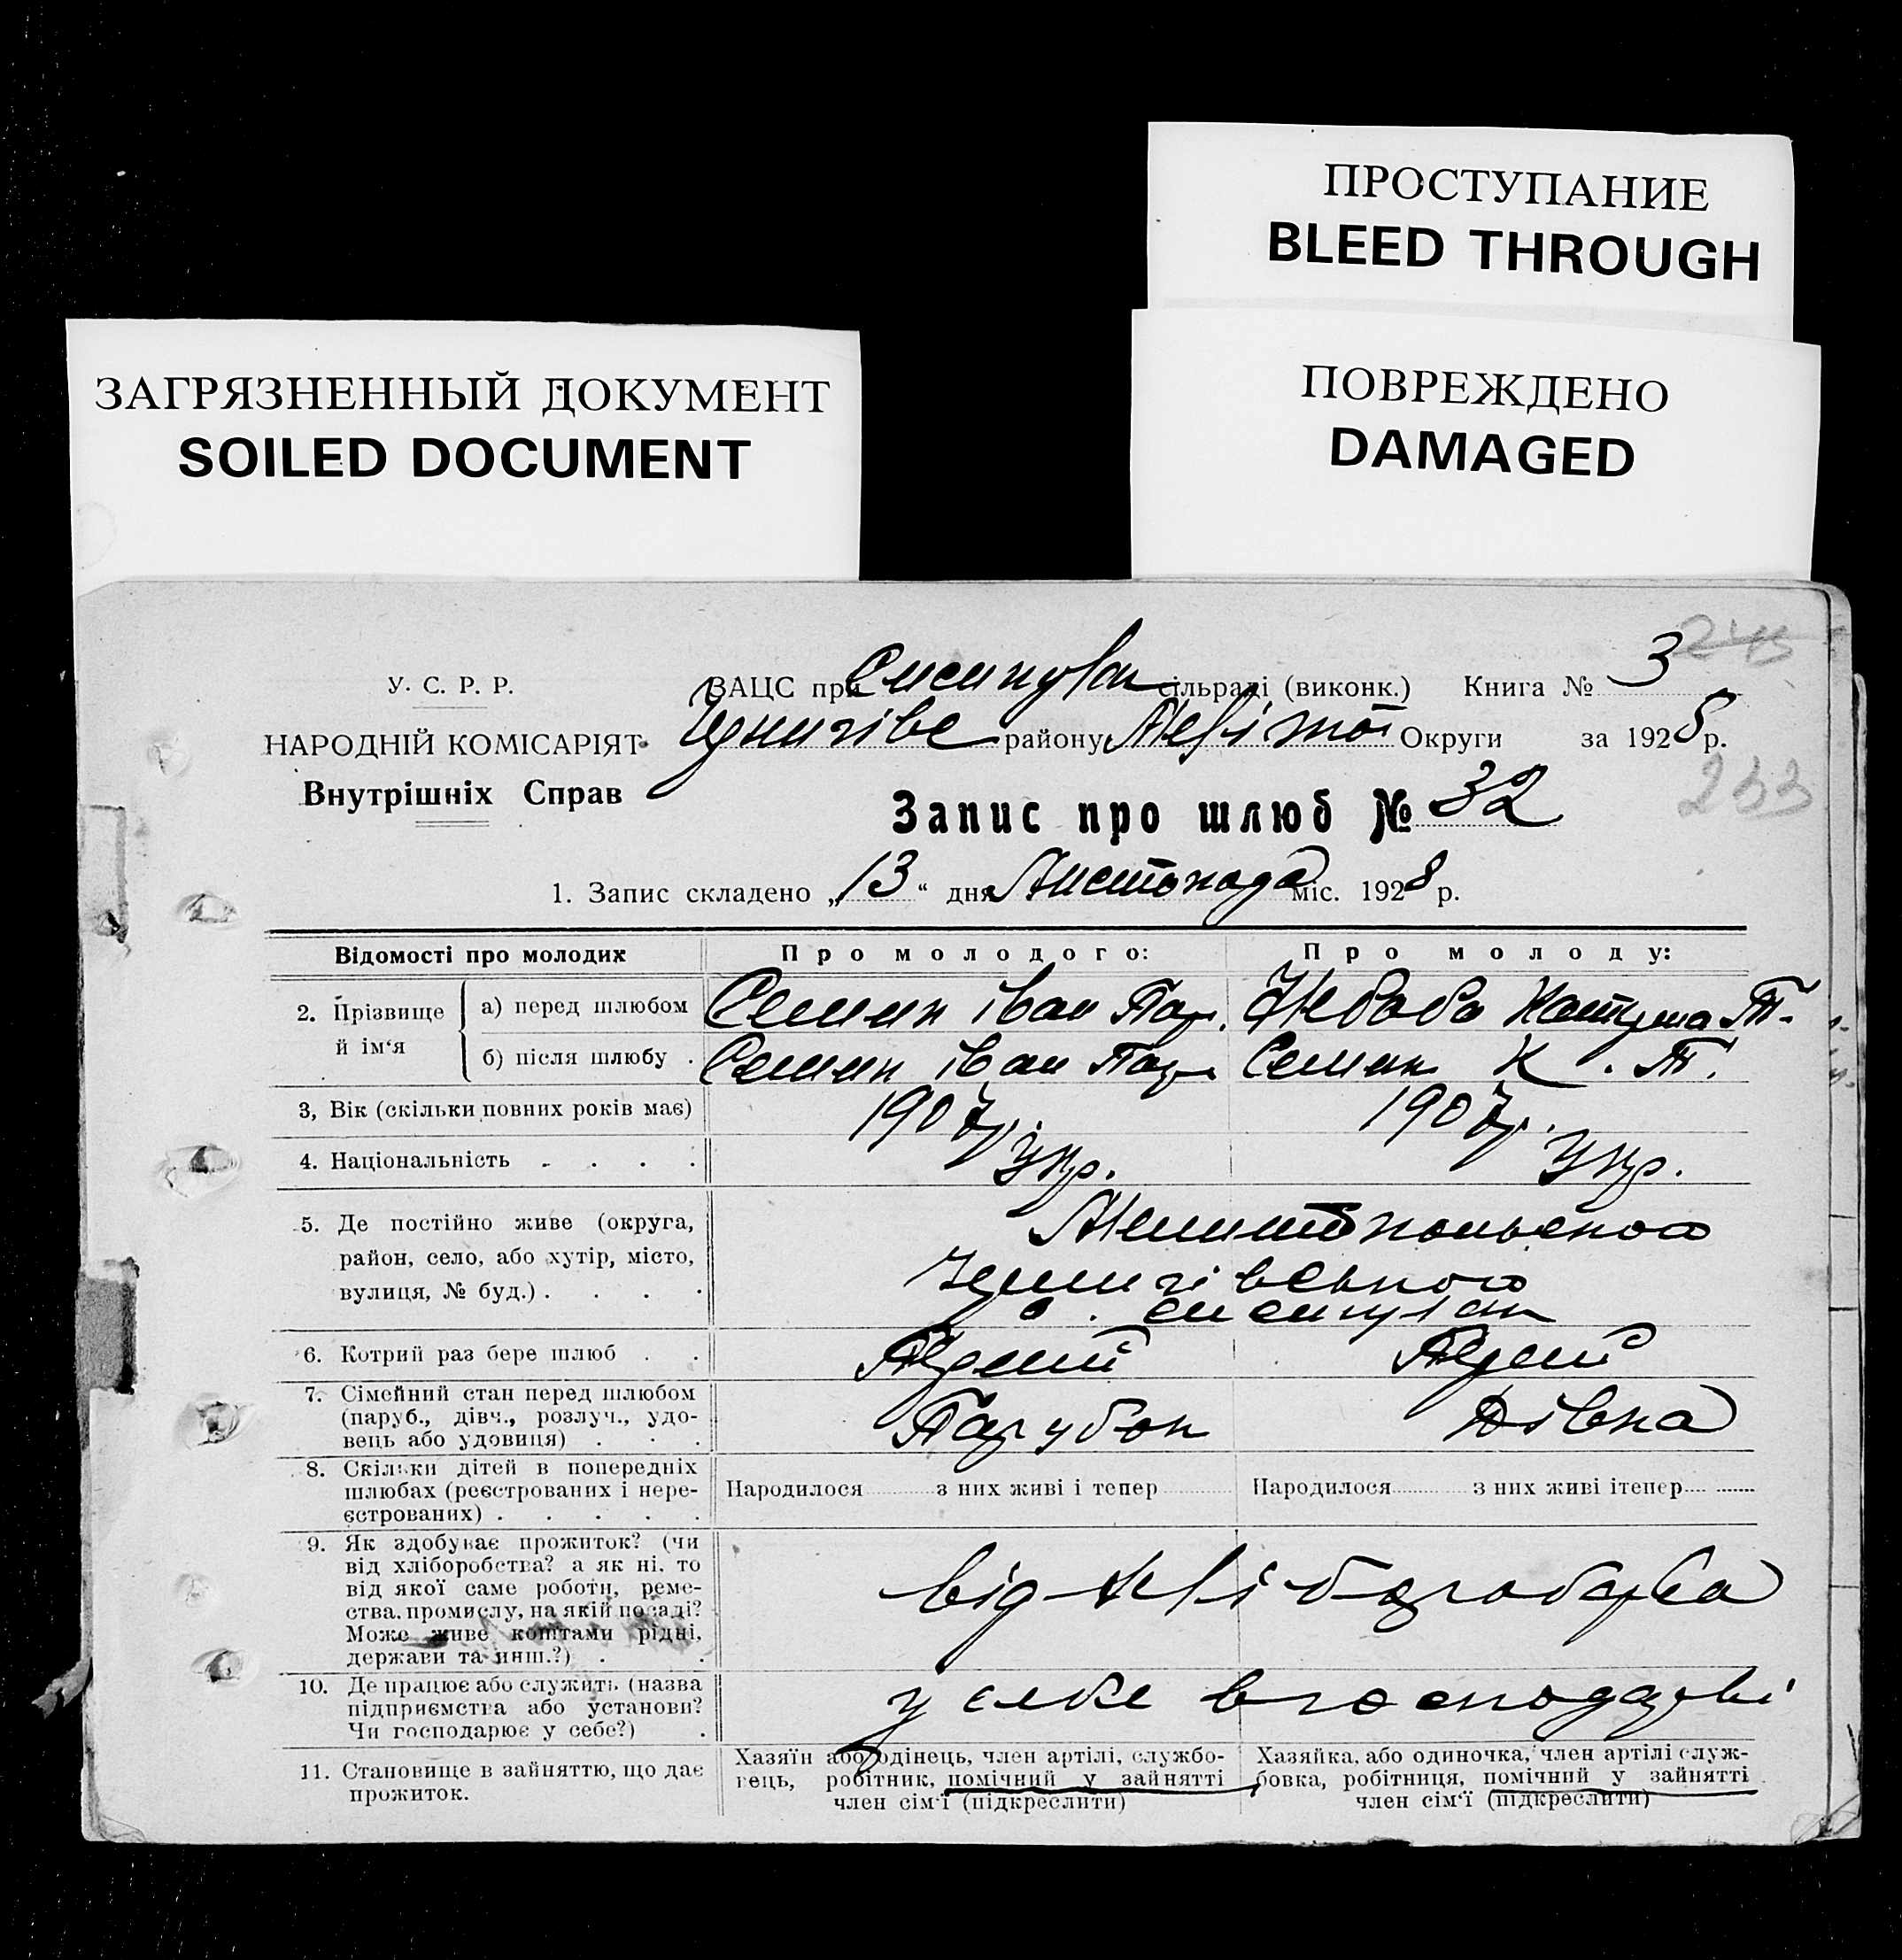 ПРОСТУПАНИЕ
BLEED THROUGH
ЗАГРЯЗНЕННЫЙ ДОКУМЕНТ
SOILED DOCUMENT
ПОВРЕЖДЕНО
DAMAGED
У. С. Р. Р.
НАРОДНІЙ КОМІСАРІЯТ
Внутрішніх Справ
ЗАЦС при сільраді (виконк.) Книга № 3
району Округи за 1928 р.
233
Запис про шлюб № 32
1. Запис складено „13“ дня Листопада міс. 1928 р.
Відомості про молодих Про молодого: Про молоду:
2. Прізвище й ім‘я
а) перед шлюбом Семин Іван Пар. Жбаба Т.
б) після шлюбу . Семин Іван Пар. Семин К. Т.
3, Вік (скільки повних років має) 1907р. 1907р.
4. Національність . . . . Укр. Укр.
5. Де постійно живе (округа, Мелитопольського
район, село, або хутір, місто,
вулиця, № буд.) . . . .
6. Котрий раз бере шлюб . . Перший Перший
7. Сімейний стан перед шлюбом
(паруб., дівч., розлуч., удо- Парубок Дівка
вець або удовиця) . . .
8. Скільки дітей в попередніх
шлюбах (реєстрованих і нере- Народилося з них живі і тепер Народилося з них живі ітепер
єстрованих) . . . . .
9. Як здобуває прожиток? (чи
від хліборобства? а як ні, то
від якої саме роботи, реме- від хліборобства
ства, промислу, на якій посаді?
Може живе коштами рідні,
держави та инш.?) . .
10. Де працює або служить (назва у себе в господарстві
підприємства або установи?
Чи господарює у себе?) .
11. Становище в зайняттю, що дає
прожиток.
Хазяїн або одінець, член артілі, службо-
вець, робітник, помічний у зайнятті
член сім‘ї (підкреслити)
Хазяйка, або одиночка, член артілі служ-
бовка, робітниця, помічний у зайнятті
член сім‘ї (підкреслити)